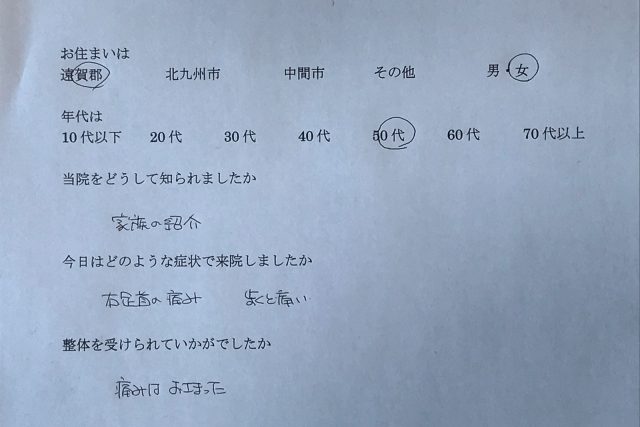 お住まいは
遠賀郡 北九州市 中間市 その他 男・女
年代は
10代以下 20代 30代 40代 50代 60代 70代以上
当院をどうして知られましたか
家族の紹介
今日はどのような症状で来院しましたか
右足首の痛み 歩くと痛い
整体を受けられていかがでしたか
痛みはおさまった